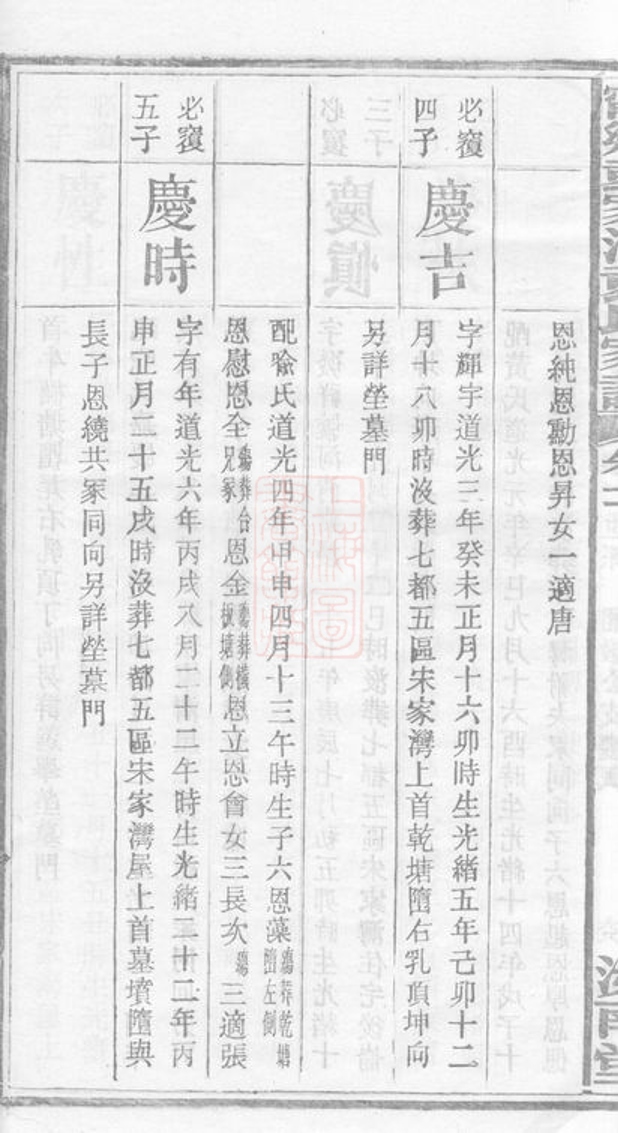 恩純恩勳恩昇女一適唐
必𧶽
四子
慶吉
字輝宇道光三年癸未正月十六卯時生光緒五年己卯十二
月廿八卯時沒葬七都五區宋家灣上首乾塘墮右乳頂坤向
另詳塋墓門
配喩氏道光四年甲申四月十三午時生子六恩藻殤葬乾塘墮左側
恩慰恩全殤葬台兄冢恩金殤葬橫板塘側恩立恩會女三長次殤三適張
五子
慶時
字有年道光六年丙戌八月二十二午時生光緒三十二年丙
申正月二十五戌時沒葬七都五區宋家灣屋上首墓墳墮與
長子恩繞共冢同向另詳塋墓門